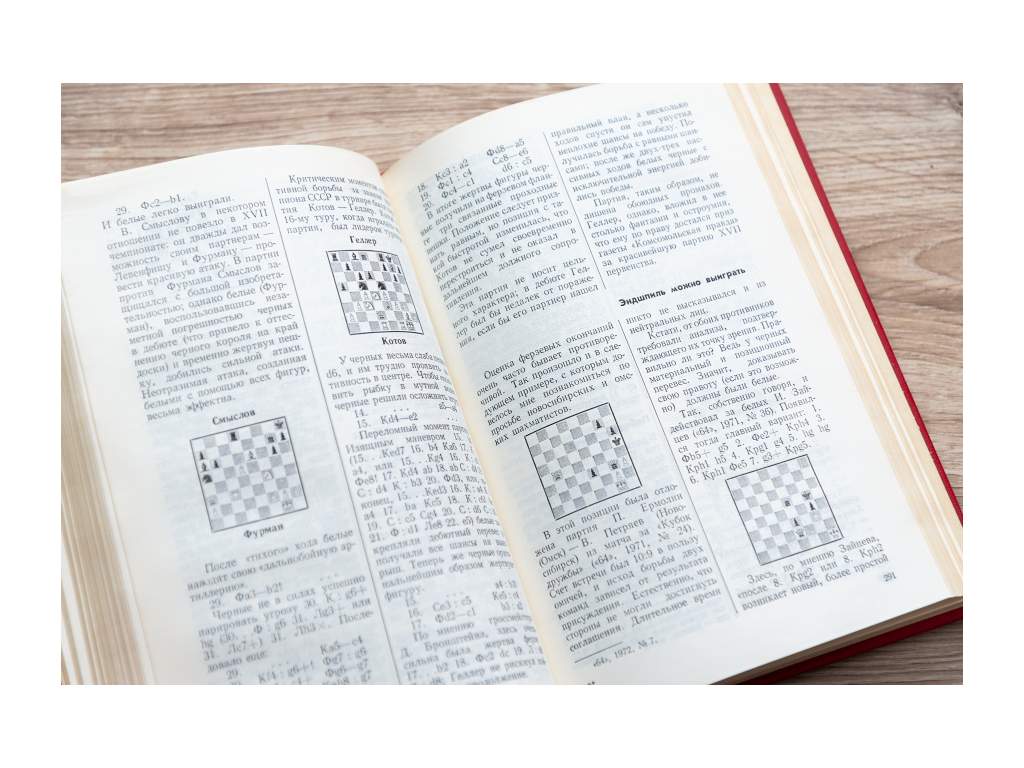 29. Фc2—b1.
И белые легко выиграли.
В. Смыслову в некотором
отношении не повезло в XVII
чемпионате: он дважды дал воз-
можность своим партнерам —
Левенфишу и Фурману — про-
вести красивую атаку. В партии
против Фурмана Смыслов за-
щищался с большой изобрета-
тельностью; однако белые (Фур-
ман), воспользовавшись неза-
метной погрешностью черных
в дебюте (что привело к оттес-
нению черного короля на край
доски) и временно жертвуя пеш-
ку, добились сильной атаки.
Неотразимая атака, созданная
белыми с помощью всех фигур,
весьма эффектна.
Смыслов
Фурман
После «тихого» хода белые
вводят свою «дальнобойную ар-
тиллерию».
29. Фa3—b2!!
Черные не в силах успешно
парировать угрозу 30.
31.
довало еще:
Критическим моментом
тивной борьбы за звание
пиона СССР в турнире был
тия Котов — Геллер. Котов
16-му туру, когда игралась
партия, был лидером
Геллер
Котов
У черных весьма слаба
d6, и им трудно проявить
тивность в центре. Чтобы
вить рыбку в мутной
черные решили осложнить
14.
15. Kd4—e2
Переломный момент партии.
Изящным маневром 15.
(15. . .Ked7 16. b4 Ka6 17.
a4, или 15. . .Kg4 16.
конец, 15. . .Ked3 16.
a4 17. ba Kc5 18.
19. C : e5 Cg4 20.
21. Ф : d1 Лe8 22. e5) белые
крепляли дебютный перевес
получали все шансы на выиг-
рыш. Теперь же черные
нальнейшим образом жертвуют
фигуру.
15.
16. Ce3 : c5
17. Фd2—c1
По мнению гроссмейстера
Д. Бронштейна, здесь
сильна была жертва
18. Kc3 : a2 Фd8—a5
19. Фc1 : c4 Cc8—e6
20. Фc4—c1 d6 : c5
В итоге жертвы фигуры чер-
ные получили на ферзевом флан-
ге три связанные проходные
пешки. Положение следует приз-
нать равным, но позиция с та-
кой быстротой изменилась, что
Котов не сумел своевременно
перестроиться и не оказал в
дальнейшем должного сопро-
тивления.
Эта партия не носит цель-
ного характера; в дебюте Гел-
лер был бы недалек от пораже-
ния, если бы его партнер нашел
правильный план, а несколько
ходов спустя он сам упустил
неплохие шансы на победу. По-
лучилась борьба с равными шан-
сами; после же двух-трех пас-
сивных ходов белых черные с
исключительной энергией доби-
лись победы.
Партия, таким образом, не
лишена обоюдных промахов.
Геллер, однако, вложил в нее
столько фантазии и остроумия,
что ему по праву достался приз
газеты «Комсомольская правда»
за красивейшую партию XVII
первенства.
Эндшпиль можно выиграть
Оценка ферзевых окончаний
очень часто бывает противоре-
чивой. Так произошло и в сле-
дующем примере, с которым до-
велось мне познакомиться по
просьбе новосибирских и омс-
ких шахматистов.
В этой позиции была отло-
жена партия П. Ермолин
(Омск) — В. Петряев (Ново-
сибирск) из матча за «Кубок
дружбы» («64», 1971, № 24).
Счет встречи был 10:9 в пользу
омичей, и исход борьбы двух
команд зависел от результата
присуждения. Естественно, что
стороны не могли достигнуть
соглашения. Длительное время
«64», 1972, № 7.
никто не высказывался и из
нейтральных лиц.
Кстати, от обоих противников
требовали анализа, подтвер-
ждающего их точку зрения. Пра-
вильно ли это? Ведь у черных
материальный и позиционный
перевес. Значит, доказывать
свою правоту (если это возмож-
но) должны были белые.
Так, собственно говоря, и
действовал за белых И. Зай-
цев («64», 1971, № 36). Появил-
ся тогда главный вариант: 1.
Фb5+ g5 2. Фe2+ Kph4 3.
Kph1 h5 4. Kpg1 g4 5. hg hg
6. Kph1 Фe5 7. g3+ Kpg5.
Здесь, по мнению Зайцева,
«после 8. Kpg2 или 8. Kph2
возникает новый, более простой
291